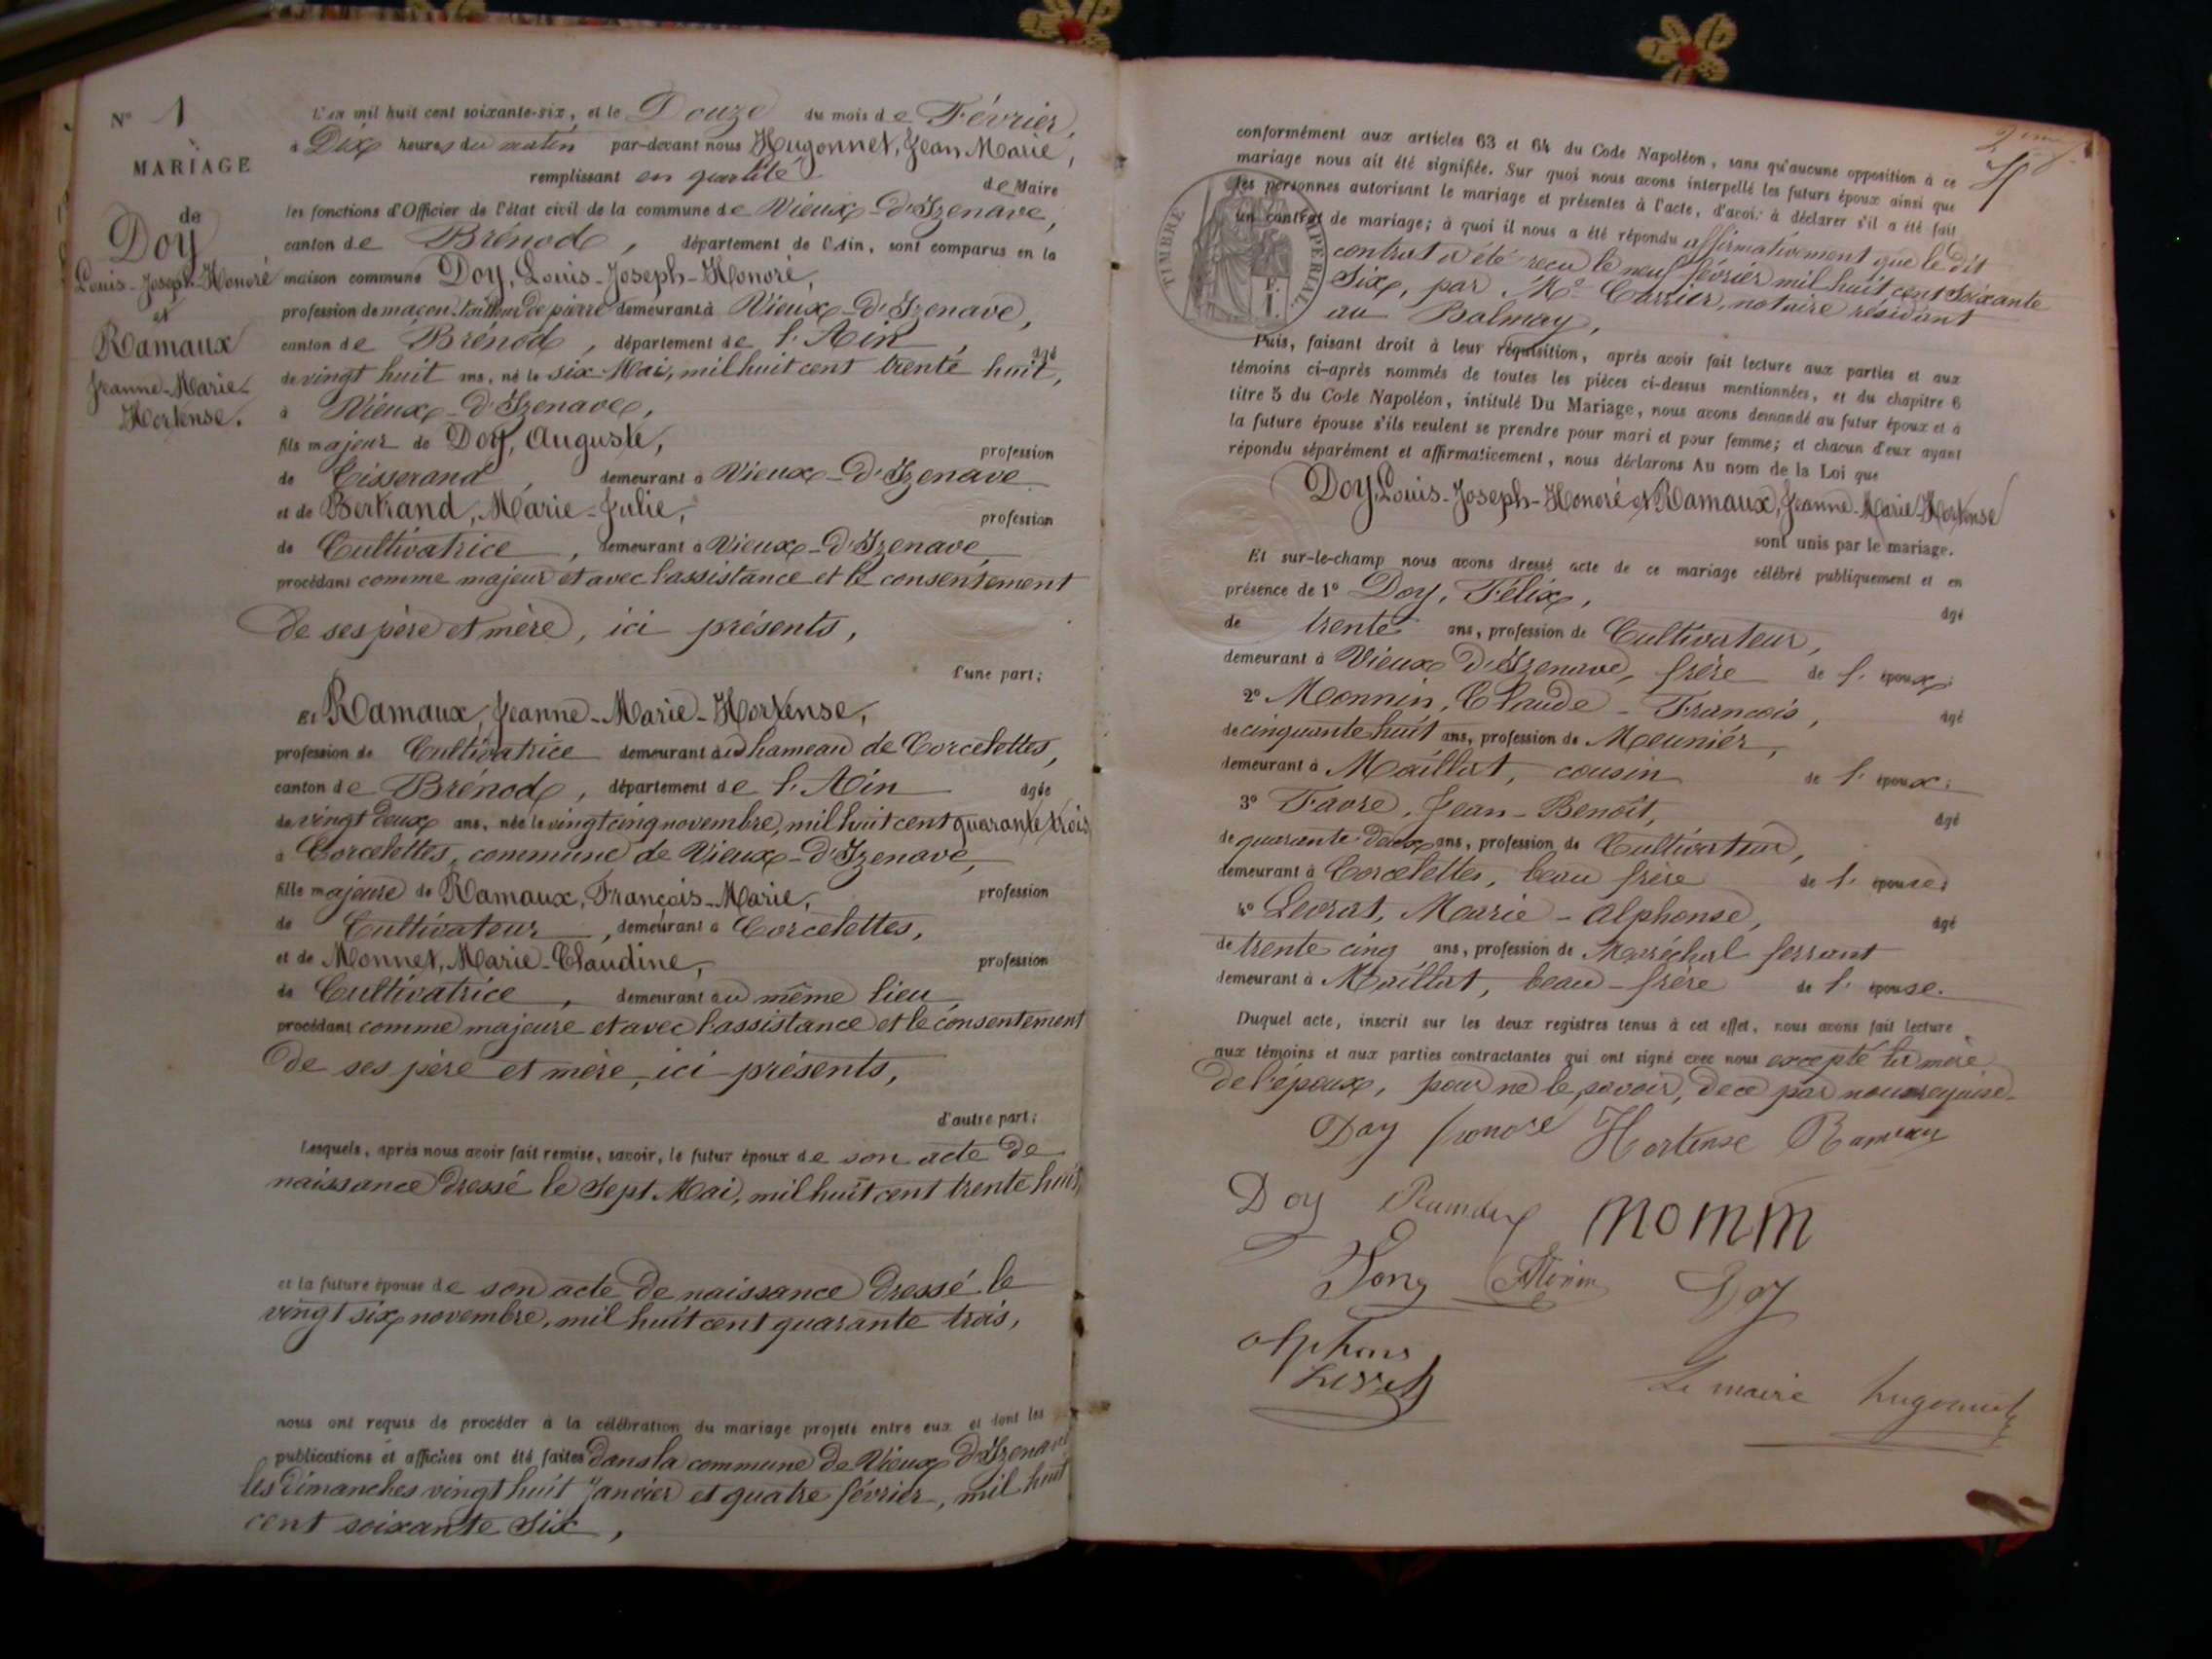 N° 1
MARIAGE
de
Doy
Louis-Joseph-Honoré
et
Ramaux
Jeanne-Marie-
Hortense.
L'an mil huit cent soixante-six, et le Douze du mois de Février,
à Dix heures du matin par-devant nous Hugonnet, Jean Marie,
remplissant en qualité de Maire
les fonctions d'Officier de l'état civil de la commune de Vieux-d'Izenave,
canton de Brénod, département de l'Ain, sont comparus en la
maison commune Doy, Louis-Joseph-Honoré,
profession de maçon tailleur de pierre demeurant à Vieux-D'Izenave,
canton de Brénod, département de l'Ain, âgé
de vingt huit ans, né le six Mai, mil huit cent trente huit,
à Vieux-D'Izenave,
fils majeur de Doy, Auguste, profession
de Tisserand, demeurant à Vieux-D'Izenave
et de Bertrand, Marie-Julie, profession
de Cultivatrice, demeurant à Vieux-D'Izenave,
procédant comme majeur et avec l'assistance et le consentement
de ses père et mère, ici présents,
d'une part;
Et Ramaux, Jeanne-Marie-Hortense,
profession de Cultivatrice demeurant au hameau de Corcelettes,
canton de Brénod, département de l'Ain âgée
de vingt deux ans, née le vingt cinq novembre, mil huit cent quarante trois
à Corcelettes, commune de Vieux-D'Izenave,
fille majeure de Ramaux, François-Marie, profession
de Cultivateur, demeurant à Corcelettes,
et de Monnet, Marie-Claudine, profession
de Cultivatrice, demeurant au même lieu,
procédant comme majeure et avec l'assistance et le consentement
de ses père et mère, ici présents,
d'autre part;
Lesquels, après nous avoir fait remise, savoir, le futur époux de son acte de
naissance dressé le sept Mai, mil huit cent trente huit,
et la future épouse de son acte de naissance dressé le
vingt six novembre, mil huit cent quarante trois,
nous ont requis de procéder à la célébration du mariage projeté entre eux et dont les
publications et affiches ont été faites dans la commune de Vieux D'Izenave
les dimanches vingt huit Janvier et quatre février, mil huit
cent soixante six,
conformément aux articles 63 et 64 du Code Napoléon, sans qu'aucune opposition à ce
mariage nous ait été signifiée. Sur quoi nous avons interpellé les futurs époux ainsi que
les personnes autorisant le mariage et présentes à l'acte, d'avoir à déclarer s'il a été fait
un contrat de mariage; à quoi il nous a été répondu affirmativement que le dit
TIMBRE IMPERIAL
1 F.
contrat a été reçu le neuf février mil huit cent soixante
six, par Me Carrier, notaire résidant
au Balmay,
Puis, faisant droit à leur réquisition, après avoir fait lecture aux parties et aux
témoins ci-après nommés de toutes les pièces ci-dessus mentionnées, et du chapitre 6
titre 5 du Code Napoléon, intitulé Du Mariage, nous avons demandé au futur époux et à
la future épouse s'ils veulent se prendre pour mari et pour femme; et chacun d'eux ayant
répondu séparément et affirmativement, nous déclarons Au nom de la Loi que
Doy, Louis-Joseph-Honoré et Ramaux, Jeanne-Marie-Hortense
sont unis par le mariage.
Et sur-le-champ nous avons dressé acte de ce mariage célébré publiquement et en
présence de 1° Doy, Félix, âgé
de trente ans, profession de Cultivateur,
demeurant à Vieux D'Izenave, frère de l'époux;
2° Monnin, Claude-François, âgé
de cinquante huit ans, profession de Meunier,
demeurant à Maillat, cousin de l'époux;
3° Favre, Jean-Benoît, âgé
de quarante deux ans, profession de Cultivateur,
demeurant à Corcelettes, beau frère de l'épouse;
4° Levrat, Marie-Alphonse, âgé
de trente cinq ans, profession de Maréchal ferrant
demeurant à Maillat, beau-frère de l'épouse.
Duquel acte, inscrit sur les deux registres tenus à cet effet, nous avons fait lecture
aux témoins et aux parties contractantes qui ont signé avec nous excepté la mère
de l'époux, pour ne le savoir, de ce par nous requise.
Doy honoré Hortense Ramaux
Doy Ramaux
Doy
Le maire hugonnet